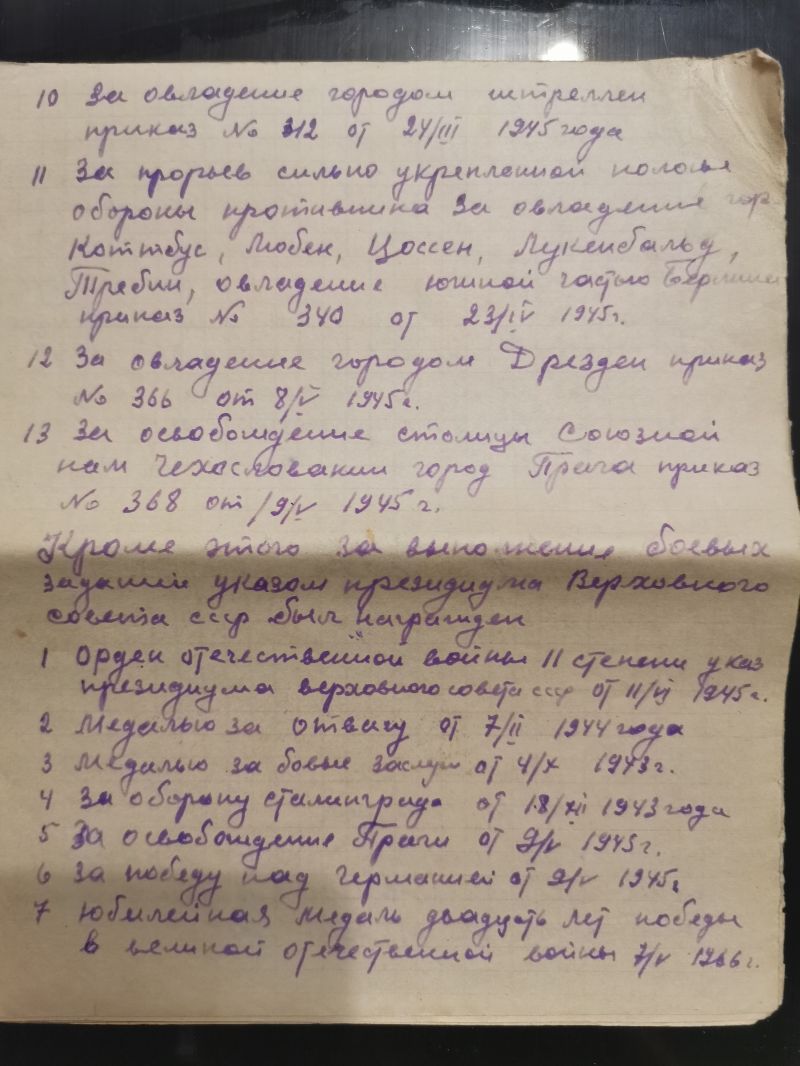 10 За овладение городом штреллен
приказ № 312 от 24/III 1945 года
11 За прорьев сильно укрепленной полосы
обороны противника За овладение гор
Коттбус, Любен, Цоссен, Лукенвальд,
Требин, овладение южной частью Берлина
приказ № 340 от 23/IV 1945г.
12 За овладение городом Дрезден приказ
№ 366 от 8/V 1945г.
13 За освобождение столицы Союзной
нам Чехословакии город Прага приказ
№ 368 от 9/V 1945г.
Кроме этого за выполнение боевых
заданий указом президиума Верховного
совета ссср был награжден
1 Орден отечественной войны II степени указ
президиума верховного совета ссср от 11/VI 1945г.
2 Медалью за отвагу от 7/II 1944 года
3 Медалью за бовые заслуги от 4/X 1943г.
4 За оборону сталинграда от 18/XII 1943 года
5 За освобождение Праги от 9/V 1945г.
6 За победу над германией от 9/V 1945г
7 Юбилейная медаль двадцать лет победы
в великой отечественной войны 7/V 1966г.